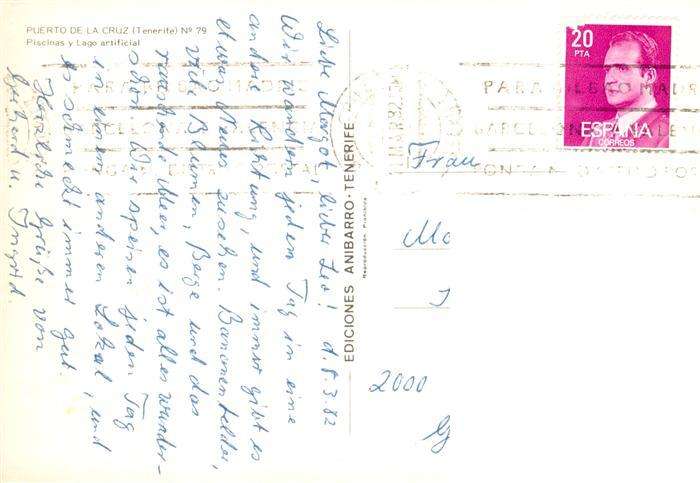 PUERTO DE LA CRUZ (Tenerife) Nº 79
Piscinas y Lago artificial
Liebe Margot, lieber Leo! d. 8.3.82
Wir wandern jeden Tag in eine
andere Richtung, und immer gibt es
etwas Neues zu sehen. Bananenfelder,
viele Blumen, Berge und das
rauschende Meer, es ist alles wunder-
schön. Wir speisen jeden Tag
in einem anderen Lokal, und
es schmeckt immer gut.
Herzliche Grüße von
Gerhard u. Ingrid.
EDICIONES ANIBARRO-TENERIFE
Reproducción Prohibida
20
PTA
ESPAÑA
CORREOS
PARA BILBAO MADRID
BARCELONA
Frau
Mo
J
2000
G